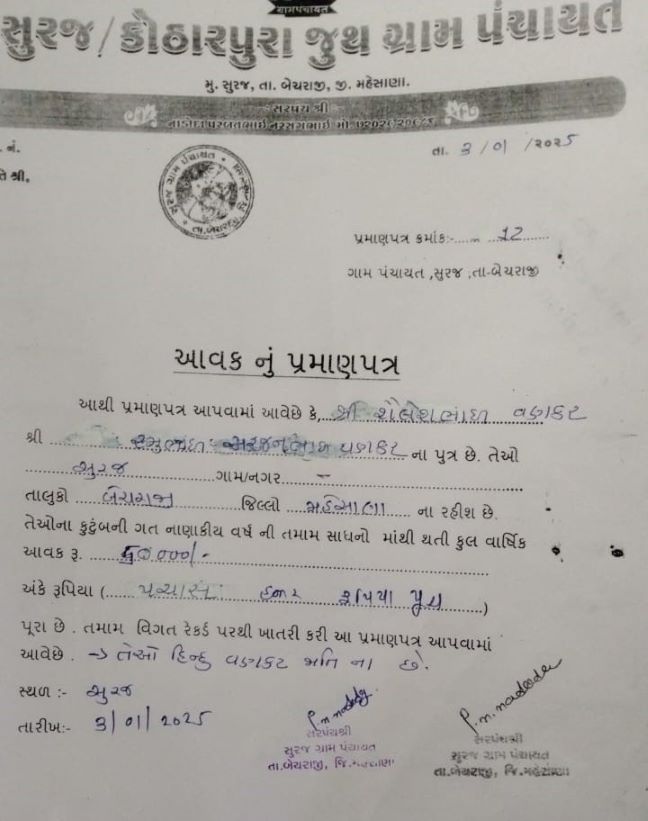 ગ્રામપંચાયત
સુરજ/કોઠારપુરા જુથ ગ્રામ પંચાયત
મુ. સુરજ, તા. બેચરાજી, જી. મહેસાણા.
સરપંચ શ્રી
નાડોદા પરબતભાઈ નરસંગભાઈ મો.
. નં.
તા. 3/01/૨૦૨5
તે શ્રી,
પ્રમાણપત્ર ક્રમાંક:-..... 12
ગામ પંચાયત ,સુરજ ,તા-બેચરાજી
આવક નું પ્રમાણપત્ર
આથી પ્રમાણપત્ર આપવામાં આવેછે કે, શ્રી શૈલેશભાઈ વણકર
શ્રી વણકર ના પુત્ર છે. તેઓ
સુરજ ગામ/નગર -
તાલુકો બેચરાજી જિલ્લો મહેસાણા ના રહીશ છે.
તેઓના કુટુંબની ગત નાણાકીય વર્ષ ની તમામ સાધનો માંથી થતી કુલ વાર્ષિક
આવક રૂ. 50000/-
અંકે રૂપિયા (પચાસ હજાર રૂપિયા પૂરા)
પૂરા છે . તમામ વિગત રેકર્ડ પરથી ખાતરી કરી આ પ્રમાણપત્ર આપવામાં
આવેછે . -> તેઓ હિન્દુ વણકર જાતિ ના છે.
સ્થળ :- સુરજ
તારીખ:- 3/01/2025
P.n.nadoda
P.n.nadoda
સરપંચશ્રી
સુરજ ગ્રામ પંચાયત
તા.બેચરાજી, જિ.મહેસાણા
સરપંચશ્રી
સુરજ ગ્રામ પંચાયત
તા.બેચરાજી, જિ.મહેસાણા